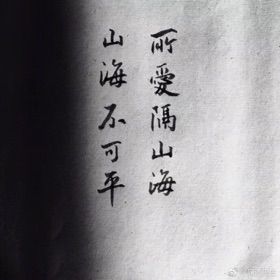 所愛隔山海
山海不可平